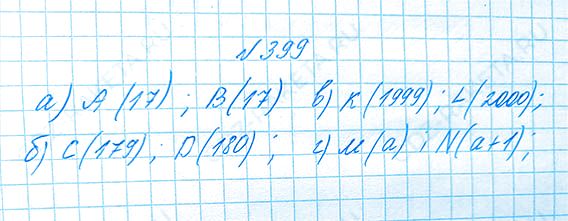 №399
а) A (17) ; B(17) в) K (1999); L(2000);
б) C(179); D(180) ; г) M(a) , N(a+1);